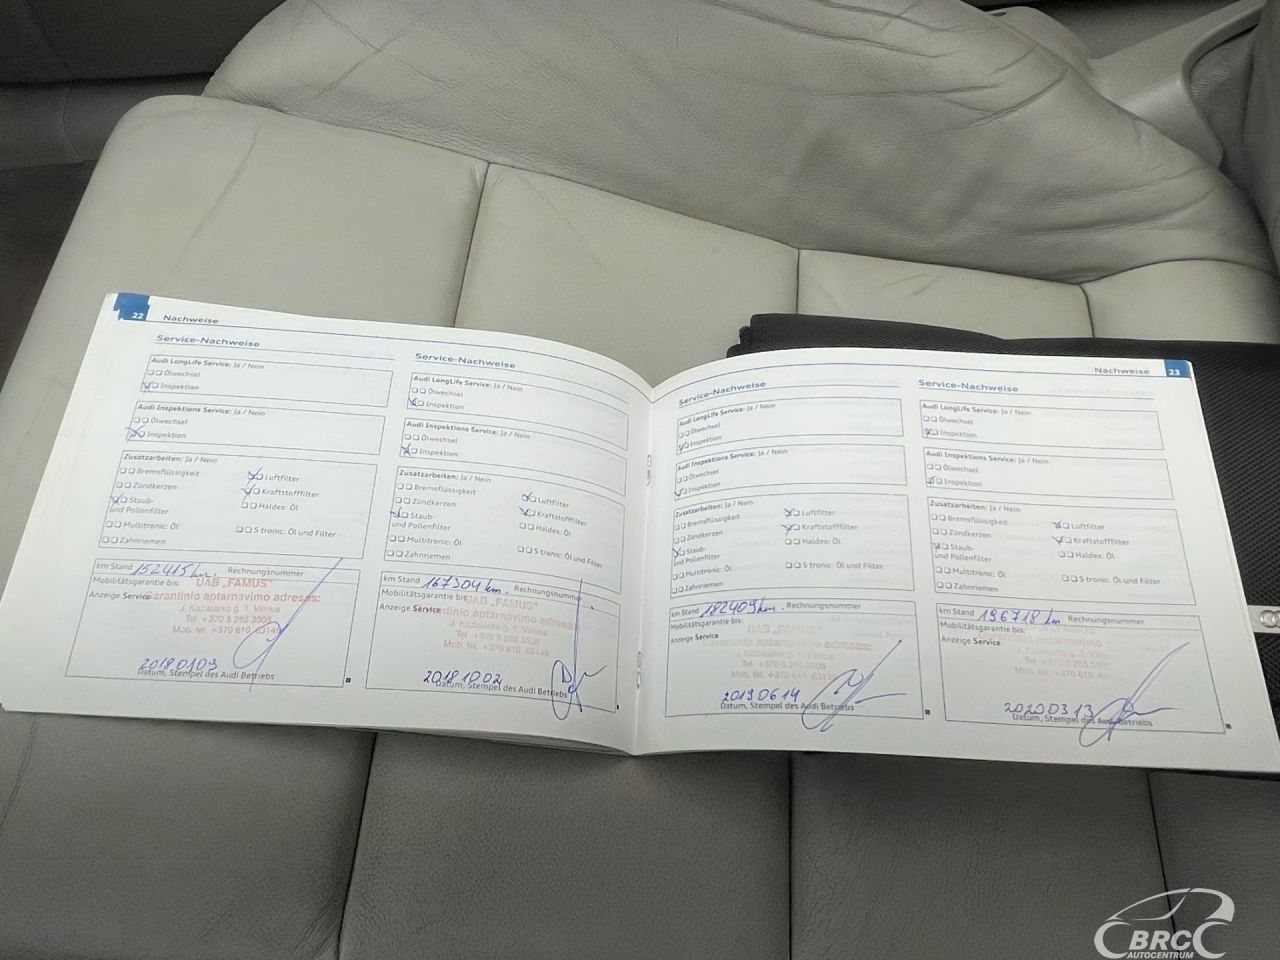 22
Nachweise
Service-Nachweise
Audi LongLife Service: Ja / Nein
Ölwechsel
Inspektion
Audi Inspektions Service: Ja / Nein
Ölwechsel
Inspektion
Zusatzarbeiten: Ja / Nein
Bremsflüssigkeit
Luftfilter
Zündkerzen
Kraftstofffilter
Staub-
und Pollenfilter
Haldex: Öl
Multitronic: Öl
S tronic: Öl und Filter
Zahnriemen
km Stand 152415 km. Rechnungsnummer
Mobilitätsgarantie bis:
UAB „FAMUS"
Anzeige Service
Garantinio aptarnavimo adresas:
J. Kazlausko g. 1, Vilnius
Tel. +370 5 265 3505
Mob. tel. +370 610 63149
20180109
Datum, Stempel des Audi Betriebs
Service-Nachweise
Audi LongLife Service: Ja / Nein
Ölwechsel
Inspektion
Audi Inspektions Service: Ja / Nein
Ölwechsel
Inspektion
Zusatzarbeiten: Ja / Nein
Bremsflüssigkeit
Luftfilter
Zündkerzen
Kraftstofffilter
Staub-
und Pollenfilter
Haldex: Öl
Multitronic: Öl
S tronic: Öl und Filter
Zahnriemen
km Stand 167304 km. Rechnungsnummer
Mobilitätsgarantie bis:
UAB „FAMUS"
Anzeige Service
Garantinio aptarnavimo adresas:
J. Kazlausko g. 1, Vilnius
Tel. +370 5 265 3505
Mob. tel. +370 610 63149
20181002
Datum, Stempel des Audi Betriebs
Nachweise
23
Service-Nachweise
Audi LongLife Service: Ja / Nein
Ölwechsel
Inspektion
Audi Inspektions Service: Ja / Nein
Ölwechsel
Inspektion
Zusatzarbeiten: Ja / Nein
Bremsflüssigkeit
Luftfilter
Zündkerzen
Kraftstofffilter
Staub-
und Pollenfilter
Haldex: Öl
Multitronic: Öl
S tronic: Öl und Filter
Zahnriemen
km Stand 182409 km. Rechnungsnummer
Mobilitätsgarantie bis:
UAB „FAMUS"
Anzeige Service
Garantinio aptarnavimo adresas:
J. Kazlausko g. 1, Vilnius
Tel. +370 5 265 3505
Mob. tel. +370 610 63149
20190614
Datum, Stempel des Audi Betriebs
Service-Nachweise
Audi LongLife Service: Ja / Nein
Ölwechsel
Inspektion
Audi Inspektions Service: Ja / Nein
Ölwechsel
Inspektion
Zusatzarbeiten: Ja / Nein
Bremsflüssigkeit
Luftfilter
Zündkerzen
Kraftstofffilter
Staub-
und Pollenfilter
Haldex: Öl
Multitronic: Öl
S tronic: Öl und Filter
Zahnriemen
km Stand 196718 km Rechnungsnummer
Mobilitätsgarantie bis:
Anzeige Service
20200313
Datum, Stempel des Audi Betriebs
BRC
AUTOCENTRUM